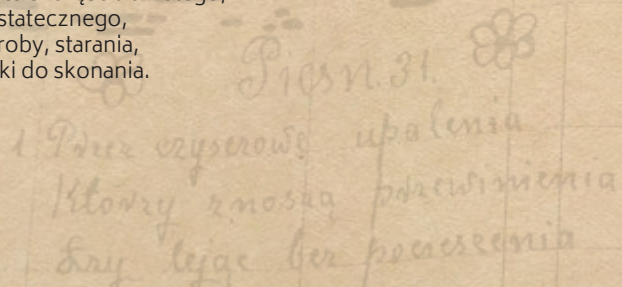 statecznego,
roby, starania,
ki do skonania.
Pieśn. 31.
1. Przez upalenia
Którzy znoszą przewinienia
Łzy lejąc bez pocieszenia